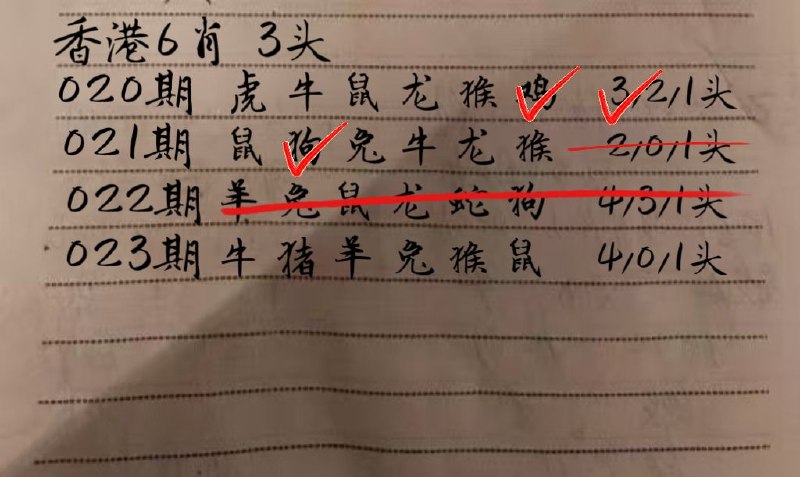 香港6肖 3头
020期 虎牛鼠龙猴鸡 3/2/1头
021期 鼠狗兔牛龙猴 2/0/1头
022期 羊兔鼠龙蛇狗 4/3/1头
023期 牛猪羊兔猴鼠 4/0/1头